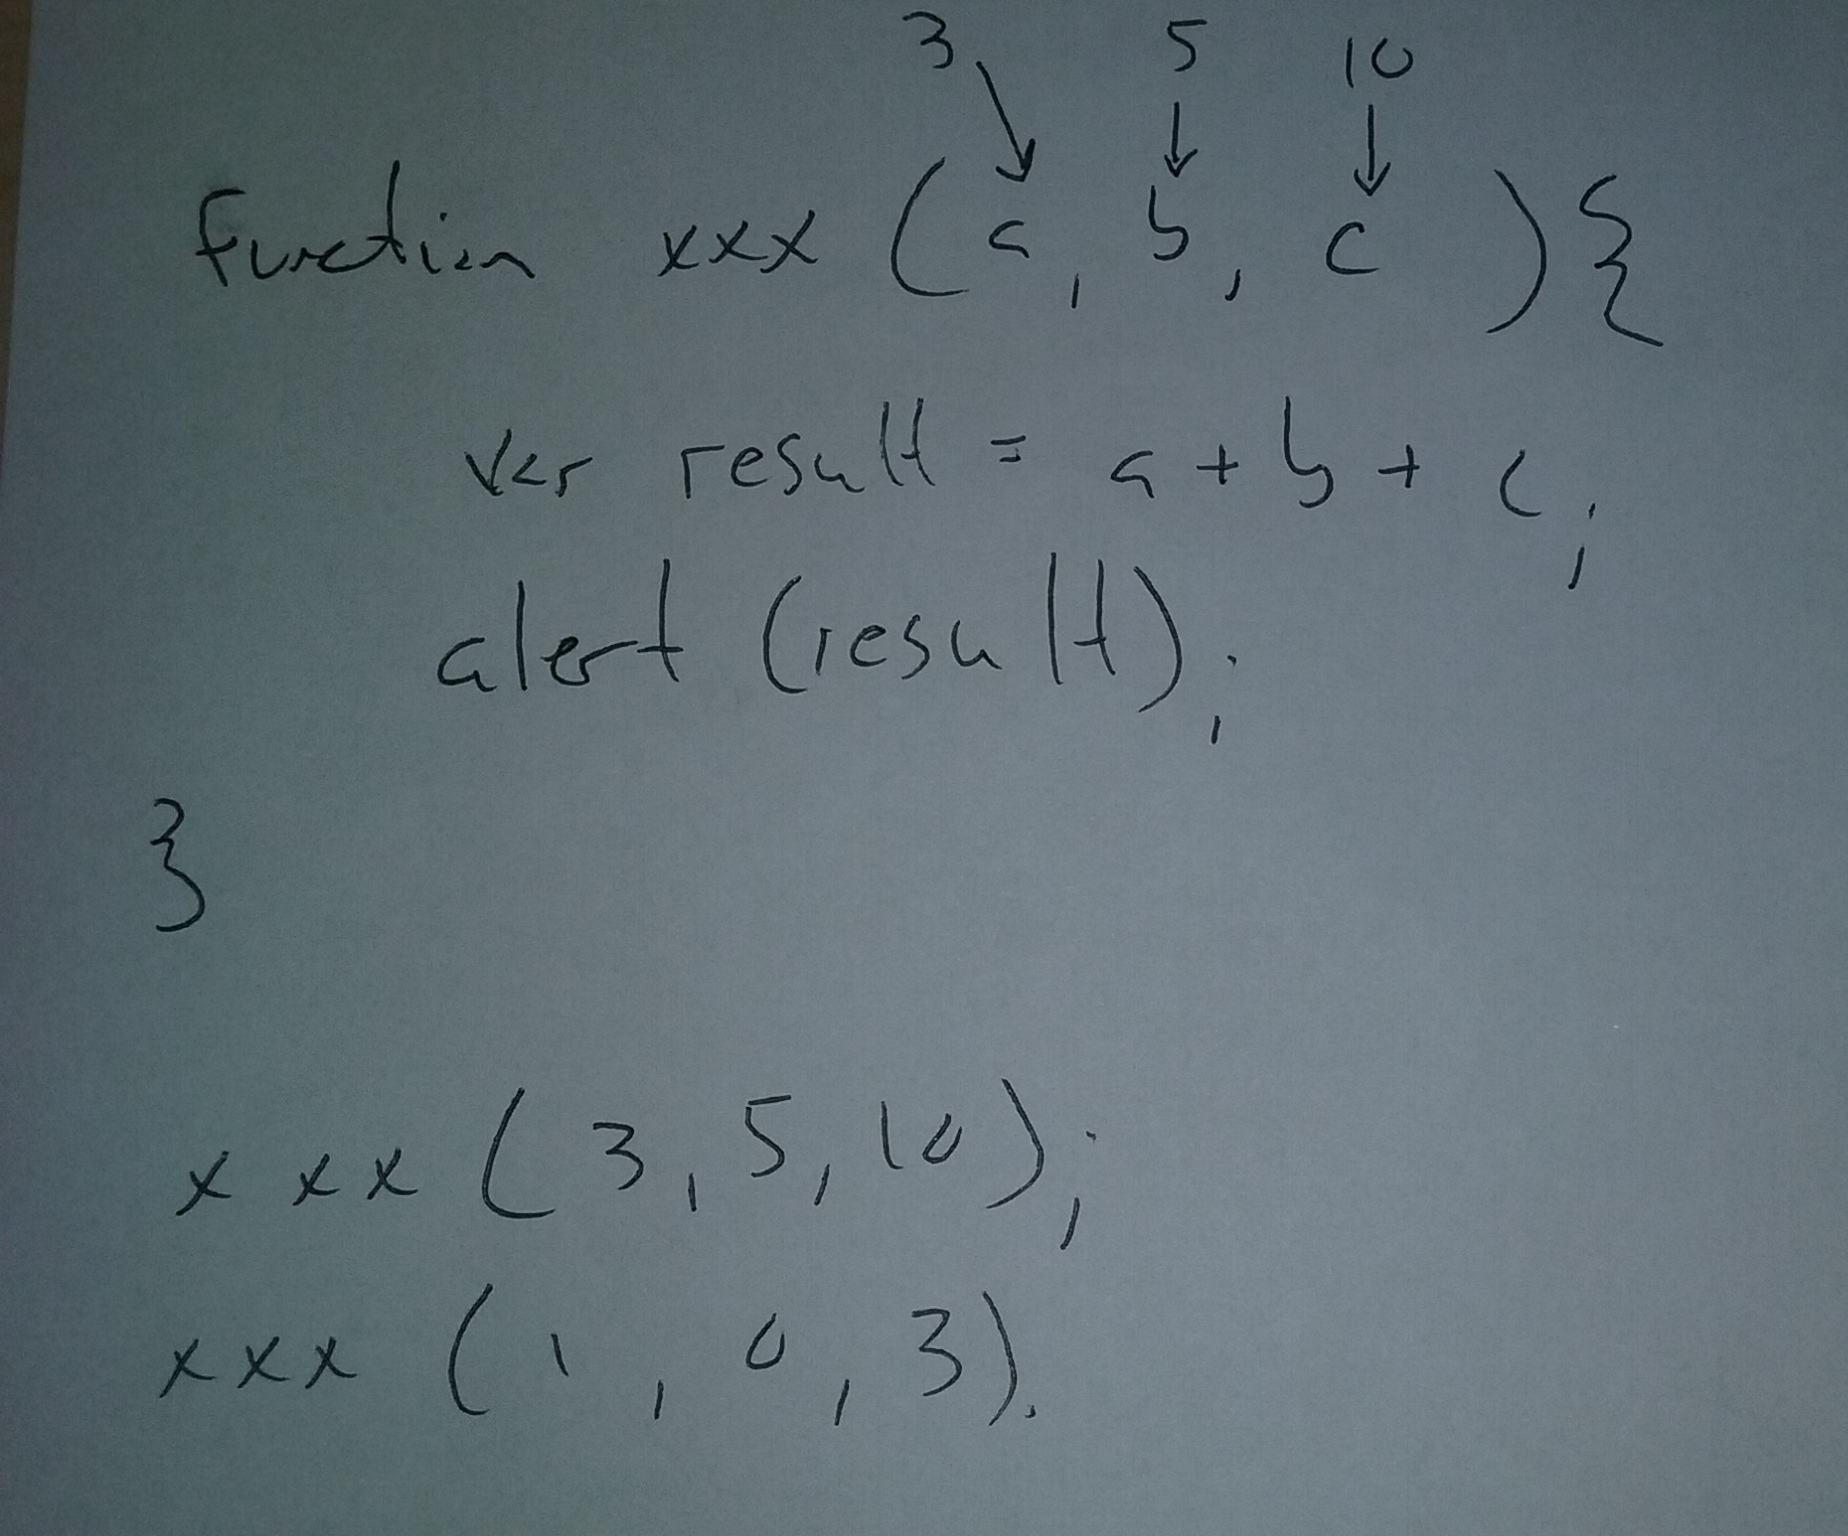 3 5 10
function xxx (a, b, c ){
var result = a + b + c;
alert (result);
}
xxx (3, 5, 10);
xxx (1, 0, 3).